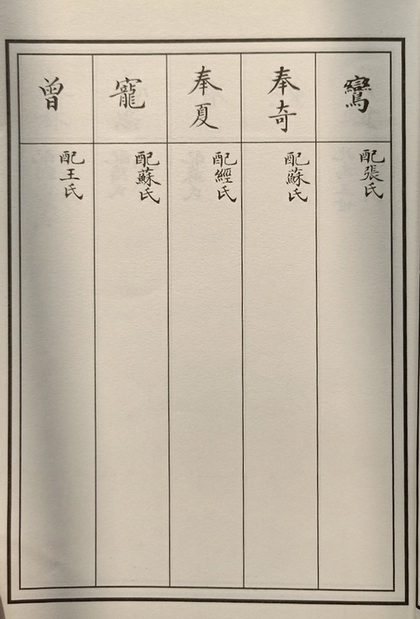 鸞
配張氏
奉奇
配蘇氏
奉夏
配經氏
寵
配蘇氏
曾
配王氏